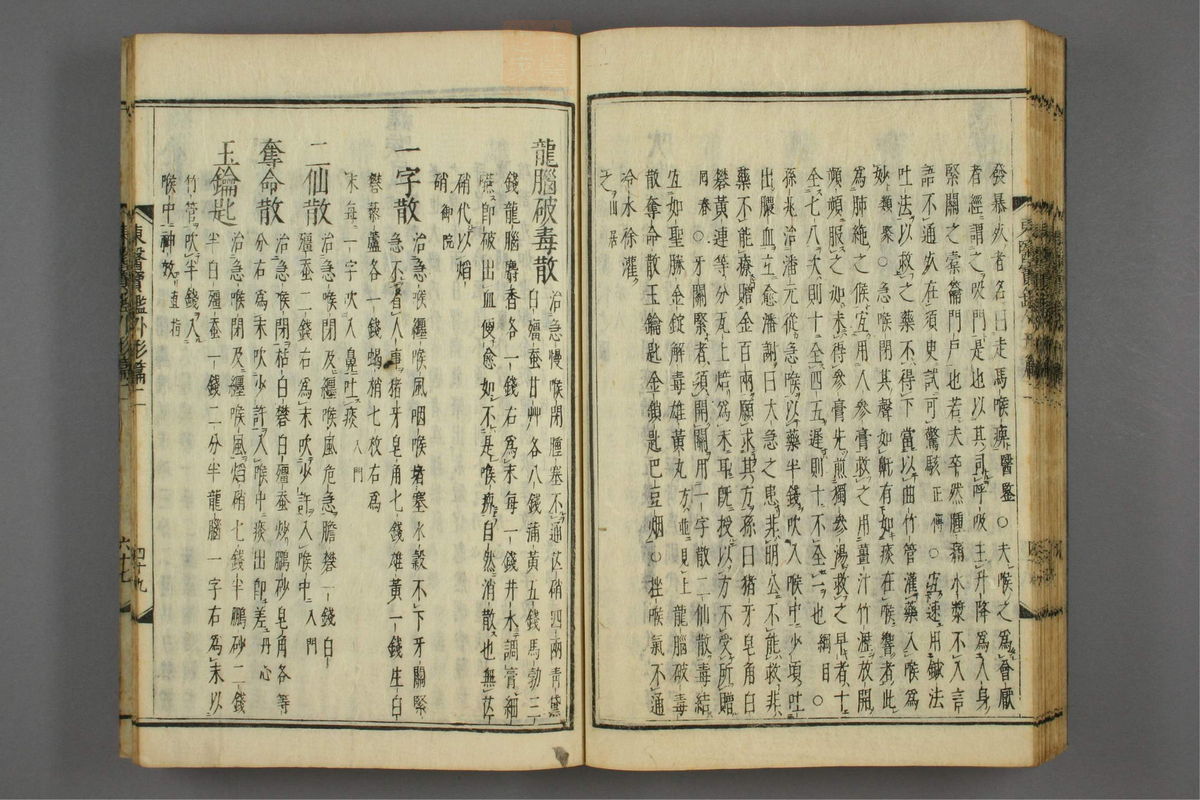 發暴死者名曰走馬喉痺醫鑒○夫喉之為會厭
者經謂之吸門是也以其司呼吸主升降為人身
緊關之橐籥門戶也若夫卒然腫痛水漿不入言
語不通死在須臾誠可驚駭正傳○宜速用鍼法
吐法以救之藥不得下當以曲竹管灌藥入喉為
妙類聚○急喉閉其聲如鼾有如痰在喉響者此
為肺絶之候宜用人參膏救之用薑汁竹瀝放開
頻頻服之如未得參膏先煎獨參湯救之早者十
全七八次則十全四五遲則十不全一也綱目○
孫兆治潘元從急喉以藥半錢吹入喉中少頃吐
出膿血立愈潘謝曰大急之患非明公不能救非
藥不能療贈金百兩願求其方孫曰猪牙皂角白
礬黃連等分瓦上焙為末耳旣授以方不受所贈
回春○牙關緊者須開關用一字散二仙散毒結
宜如聖勝金錠解毒雄黃丸方並見上龍腦破毒
散奪命散玉鑰匙金鎖匙巴豆烟○挫喉氣不通
冷水徐灌
之山居
龍腦破毒散治急慢喉閉腫塞不通芒硝四兩青黛
白殭蚕甘艸各八錢蒲黃五錢馬勃三
錢龍腦麝香各一錢右為末每一錢井水調膏細
嚥卽破出血便愈如不是喉痺自然消散也無芒
硝代以焰
硝御院
一字散治急喉纏喉風咽喉堵塞水穀不下牙關緊
急不省人事猪牙皂角七錢雄黃一錢生白
礬藜蘆各一錢蝎梢七枚右為
末每一字吹入鼻吐痰入門
二仙散治急喉閉及纏喉風危急膽礬一錢白
殭蚕二錢右為末吹少許入喉中入門
奪命散治急喉閉枯白礬白殭蚕炒鵬砂皂角各等
分右為末吹少許入喉中痰出卽差丹心
玉鑰匙治急喉閉及纏喉風焰硝七錢半鵬砂二錢
半白殭蚕一錢二分半龍腦一字右為末以
竹管吹半錢入
喉中神效直指
東醫寶鑑外形篇二
四十九